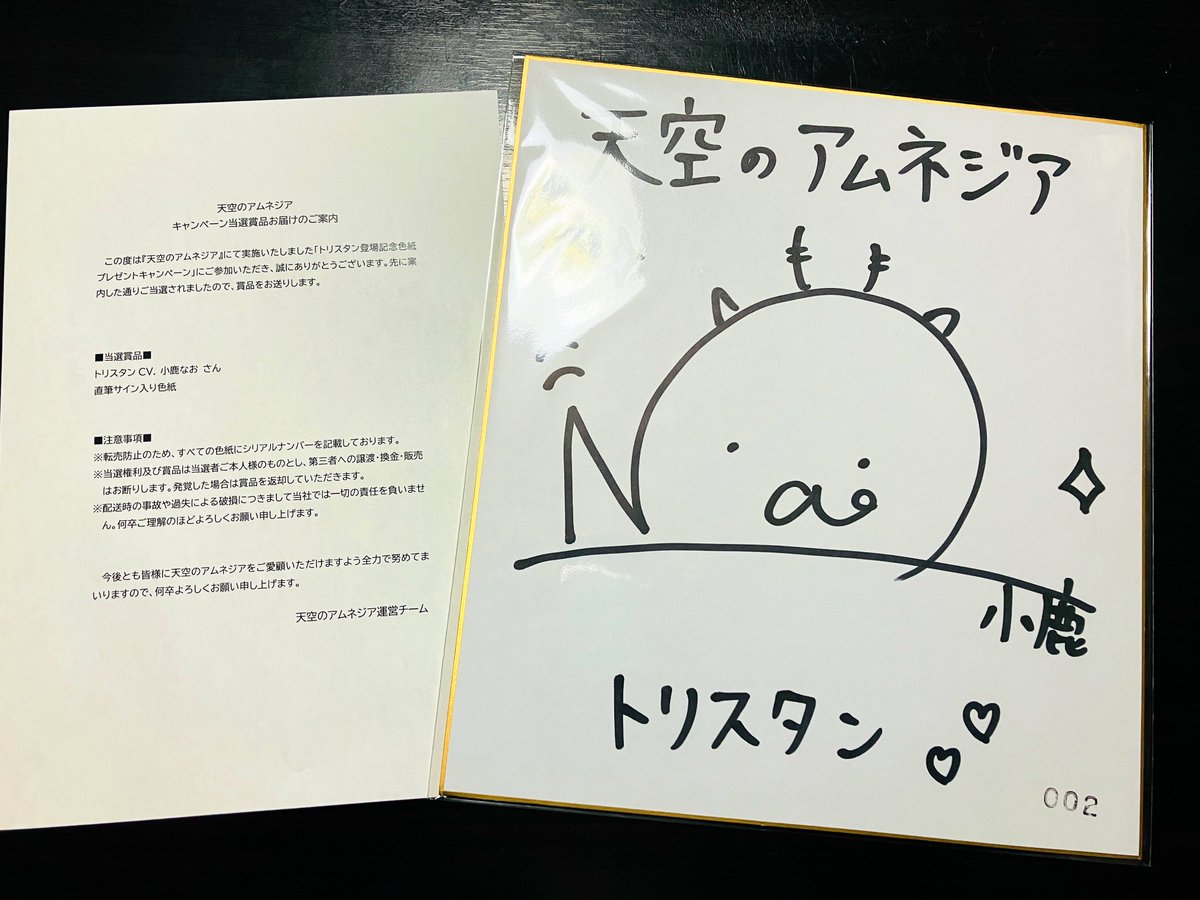 天空のアムネジア
キャンペーン当選賞品お届けのご案内
この度は『天空のアムネジア』にて実施いたしました「トリスタン登場記念色紙
プレゼントキャンペーン」にご参加いただき、誠にありがとうございます。先に案
内した通りご当選されましたので、賞品をお送りします。
■当選賞品■
トリスタン CV. 小鹿なお さん
直筆サイン入り色紙
■注意事項■
※転売防止のため、すべての色紙にシリアルナンバーを記載しております。
※当選権利及び賞品は当選者ご本人様のものとし、第三者への譲渡・換金・販売
はお断りします。発覚した場合は賞品を返却していただきます。
※配送時の事故や過失による破損につきまして当社では一切の責任を負いませ
ん。何卒ご理解のほどよろしくお願い申し上げます。
今後とも皆様に天空のアムネジアをご愛顧いただけますよう全力で努めてま
いりますので、何卒よろしくお願い申し上げます。
天空のアムネジア運営チーム
天空のアムネジア
Nao
小鹿
トリスタン
002